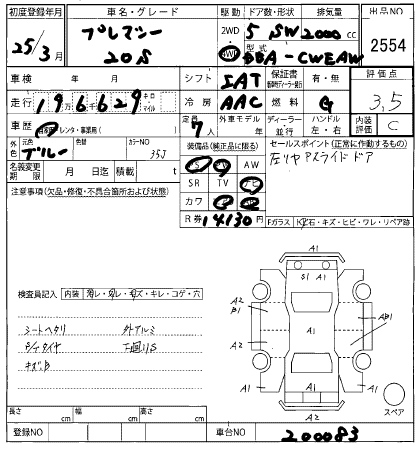 初度登録年月 車名・グレード 駆動 ドア数・形状 排気量 出品NO
25/3月 プレマシー 20S 2WD 4WD 5 SW 2000cc 2554
型式 DBA-CWEAW
車検 年 月 シフト 5AT 保証書 有・無 評価点
走行 196629 キロ マイル 冷房 AAC 燃料 G 3,5
車歴 自家用 レンタ・事業用( ) 定員 7人 外車モデル 年 ディーラー 並行 ハンドル 左・右 内装評価 C
外色 元色 ブルー 色替 カラーNO 35J 装備品(純正品に限る) セールスポイント(正常に作動するもの)
左リヤ スライドドア
名義変更期限 月 日迄 積載 t
PS PW AW
SR TV ナビ
カワ
注意事項(欠品・修復・不具合箇所および状態)
R券 14130円 Fガラス 飛石・キズ・ヒビ・ワレ・リペア跡
検査員記入 内装 キレ・コゲ・穴
シートヘタリ 外アルミ
タイヤ 下廻りS
キズ
A1
S1 A1
A2 B1
A2
A1
AB1
A1
A1 A1
A2
スペア
長さ cm 幅 cm 高さ cm
登録NO 車台NO 200083